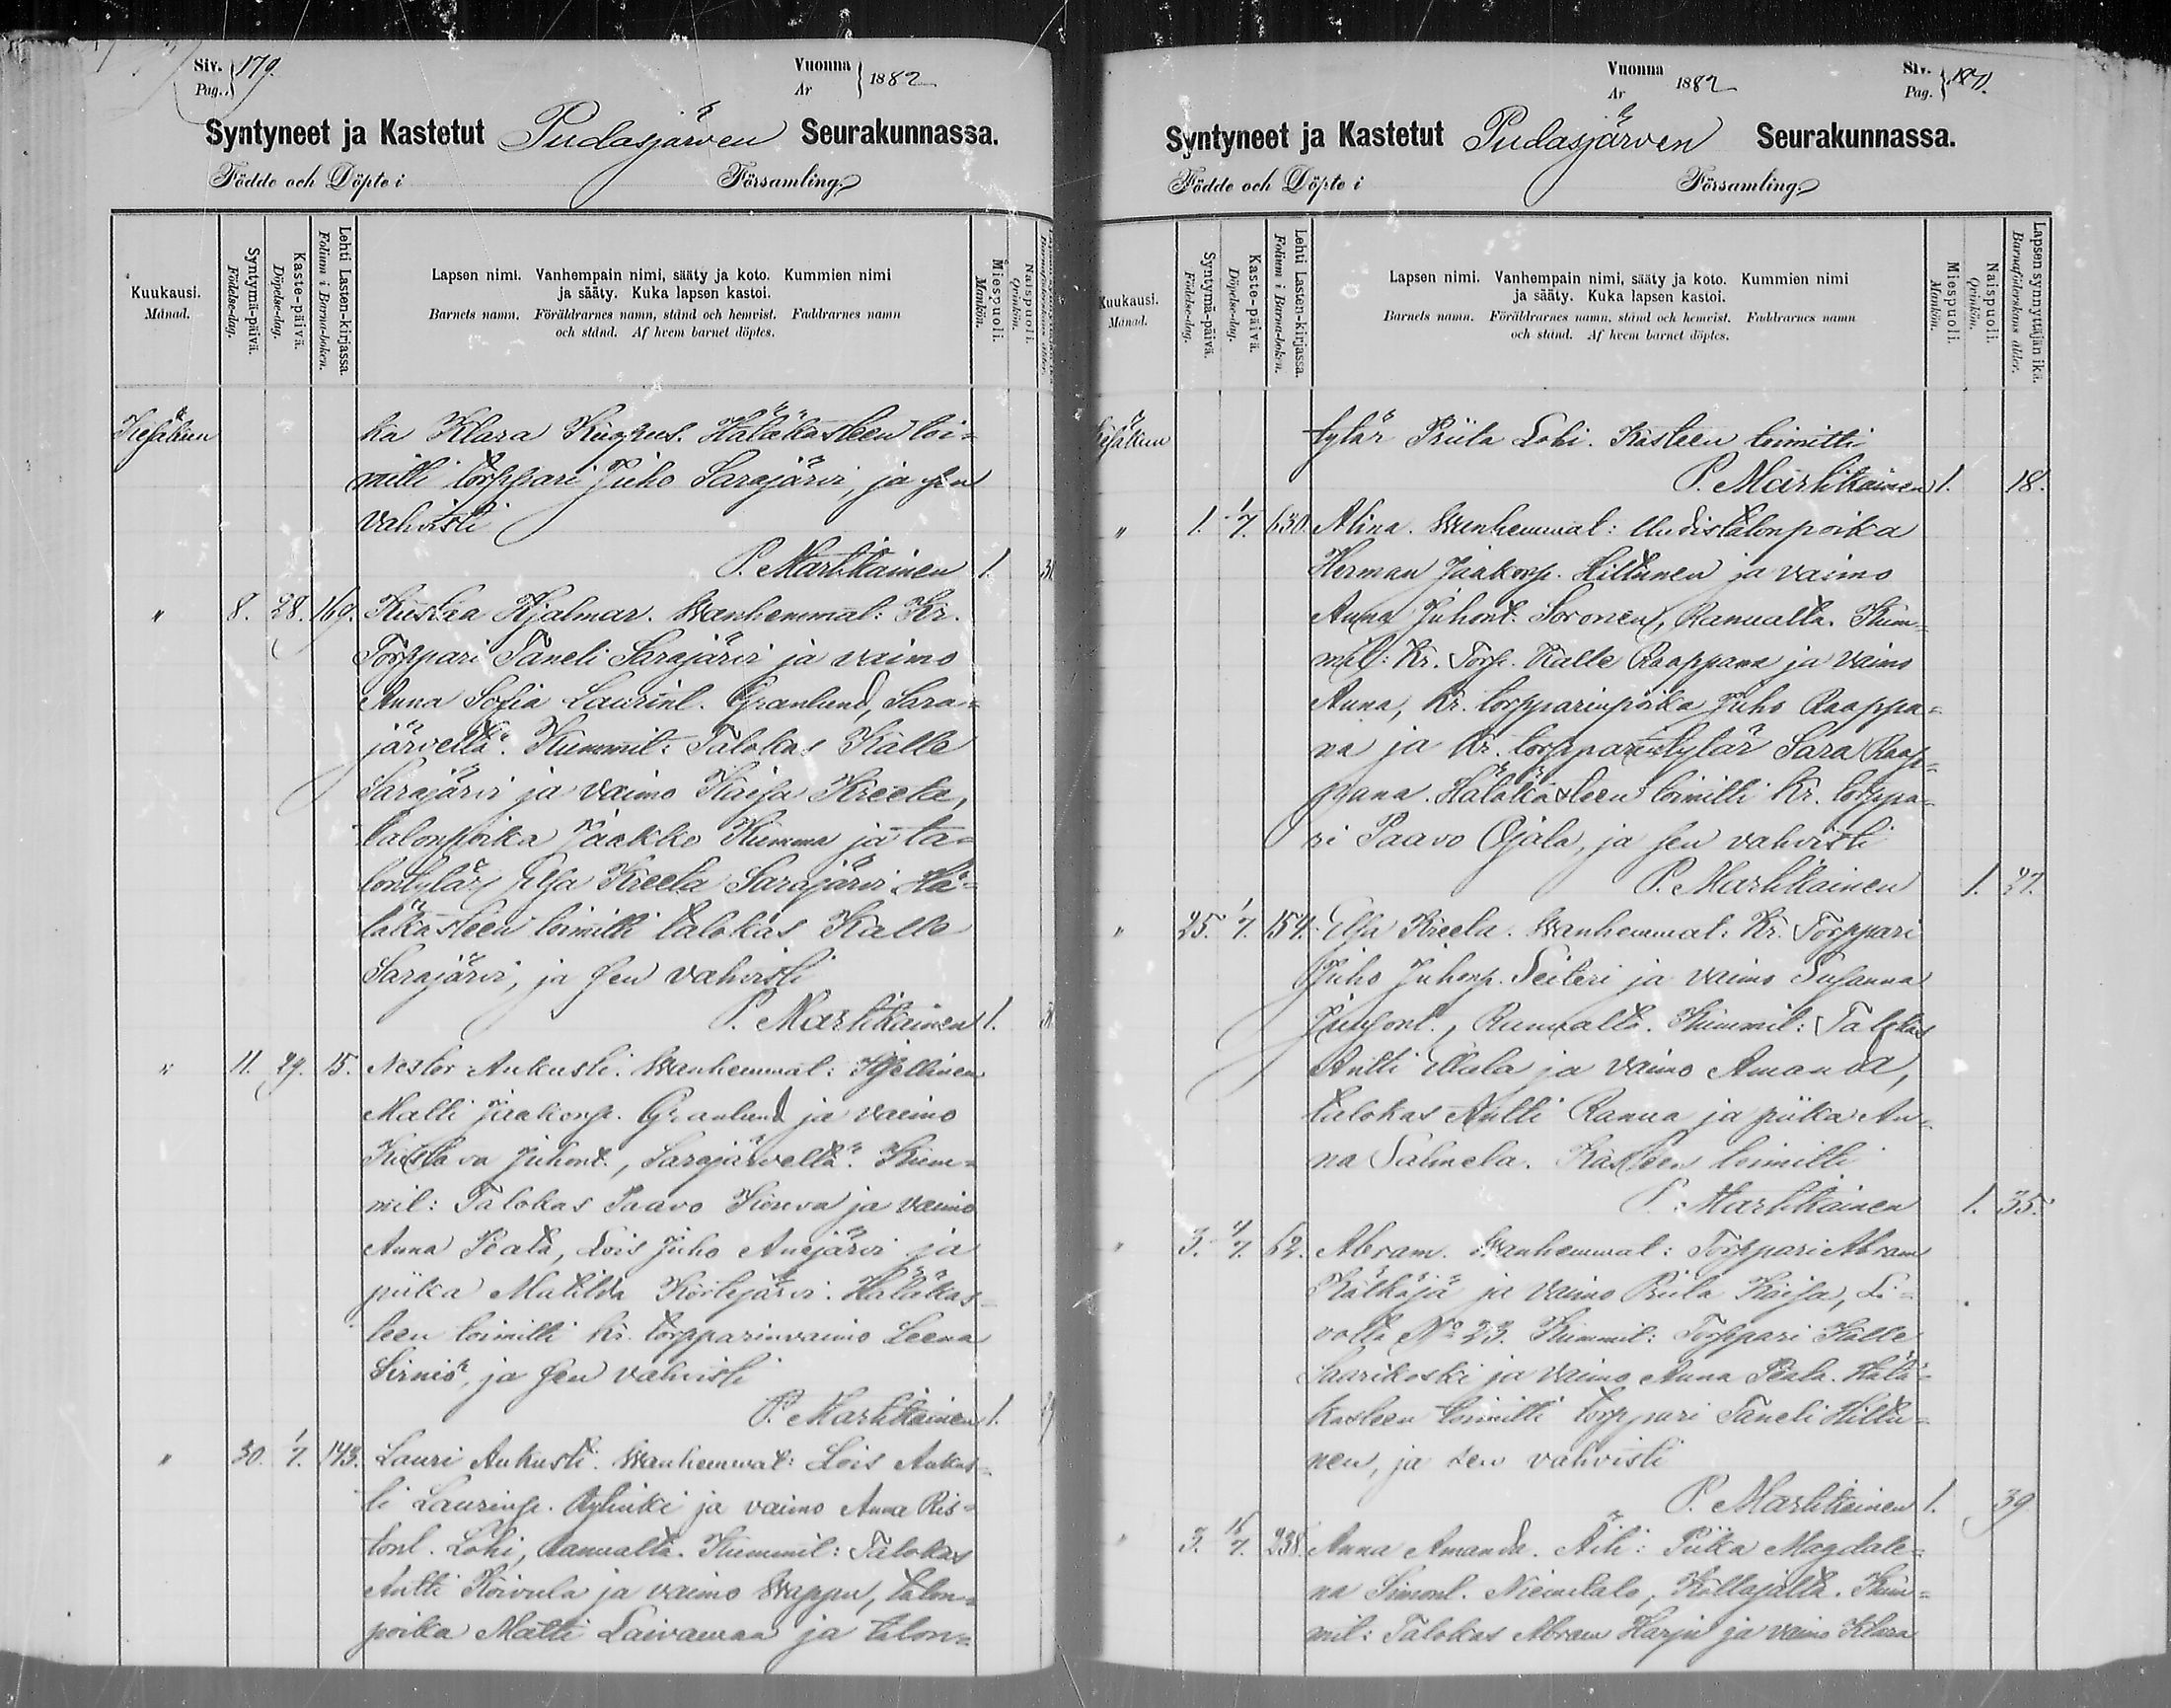 Siv. 179.
Pag.
Vuonna 1882
Ar
Syntyneet ja Kastetut Pudasjärven Seurakunnassa.
Födde och Döpte i Församling
Kuukausi.
Månad.
Syntymä-päivä.
Födelse-dag.
Kaste-päivä.
Döpelse-dag.
Lehti Lasten-kirjassa.
Folium i Barna-boken.
Lapsen nimi. Vanhempain nimi, sääty ja koto. Kummien nimi
ja sääty. Kuka lapsen kastoi.
Barnets namn. Föräldrarnes namn, stånd och hemvist. Faddrarnes namn
och stånd. Af hvem barnet döptes.
Miespuoli.
Mankön.
Naispuoli.
Qvinkön.
Kesäkuu ka Klara Kuopus. Hätäkasteen toi-
mitti torppari Juho Sarajärvi, ja sen
vahvisti
P. Martikainen 1.
" 8. 28. 169. Kustaa Hjalmar. Wanhemmat: Kr.
Torppari Taneli Sarajärvi ja vaimo
Anna Sofia Laurint. Granlund, Sara-
järveltä. Kummit: Talokas Kalle
Sarajärvi ja vaimo Kaisa Kreeta,
talonpoika Jaakko Kumma ja ta-
lontytär Elsa Kreeta Sarajärvi. Hä-
täkasteen toimitti talokas Kalle
Sarajärvi, ja sen vahvisti
P. Martikainen 1.
" 11. 29. 15. Nestor Aukusti. Wanhemmat: Itsellinen
Matti Jaakonp. Granlund ja vaimo
Kustava Juhont., Sarajärveltä. Kum-
mit: Talokas Paavo Kouva ja vaimo
Anna Peata, Lois Juho Auejärvi ja
piika Matilda Kortejärvi. Hätäkas-
teen toimitti kr. torpparinvaimo Leena
Sirniö, ja sen vahvisti
P. Martikainen 1.
" 30. 1/7. 143. Lauri Aukusti. Wanhemmat: Lois Aukus-
ti Laurinp. Rytinki ja vaimo Anna Ris-
tont. Lohi, Ranualta. Kummit: Talokas
Antti Koivula ja vaimo Wappu, talon-
poika Matti Laivamaa ja talon-
Vuonna 1882
Ar
Siv.
Pag.
Syntyneet ja Kastetut Pudasjärven Seurakunnassa.
Födde och Döpte i Församling
Kuukausi.
Månad.
Syntymä-päivä.
Födelse-dag.
Kaste-päivä.
Döpelse-dag.
Lehti Lasten-kirjassa.
Folium i Barna-boken.
Lapsen nimi. Vanhempain nimi, sääty ja koto. Kummien nimi
ja sääty. Kuka lapsen kastoi.
Barnets namn. Föräldrarnes namn, stånd och hemvist. Faddrarnes namn
och stånd. Af hvem barnet döptes.
Miespuoli.
Mankön.
Naispuoli.
Qvinkön.
Lapsen synnyttäjän ikä.
Barnaföderskans ålder.
Kesäkuu tytär Priita Lohi. Kasteen toimitti
P. Martikainen 1. 18.
" 1. 1/7. 630. Alina. Wanhemmat: Uudistalonpoika
Herman Jaakonp. Hiltunen ja vaimo
Anna Juhont. Soronen, Ranualta. Kum-
mit: Kr. Torp. Kalle Raappana ja vaimo
Anna, Kr. torpparinpoika Juho Raappa-
na ja Kr. torpparintytär Sara Raap-
pana. Hätäkasteen toimitti Kr. torppa-
ri Paavo Ojala, ja sen vahvisti
P. Martikainen 1. 27.
" 25. 1/7. 154. Elsa Kreeta. Wanhemmat: Kr. Torppari
Juho Juhonp. Teiteri ja vaimo Susanna
Ranualta. Kummit: Talokas
Antti Illula ja vaimo Amanda,
talokas Antti Ranua ja piika An-
na Salmela. Kasteen toimitti
P. Martikainen 1. 35.
" 3. 4/7. 62. Abram. Wanhemmat: Torppari Abram
Kälkäjä ja vaimo Priita Kaisa, Li-
volta No 23. Kummit: Torppari Kalle
Saarikoski ja vaimo Anna Peata. Hätä-
kasteen toimitti torppari Taneli Hiltu-
nen, ja sen vahvisti
P. Martikainen 1. 39
" 3. 238. Anna Amanda. Äiti: Piika Magdale-
na Simont. Niemitalo, Kollajalta. Kum-
mit: Talokas Abram Harju ja vaimo Klara